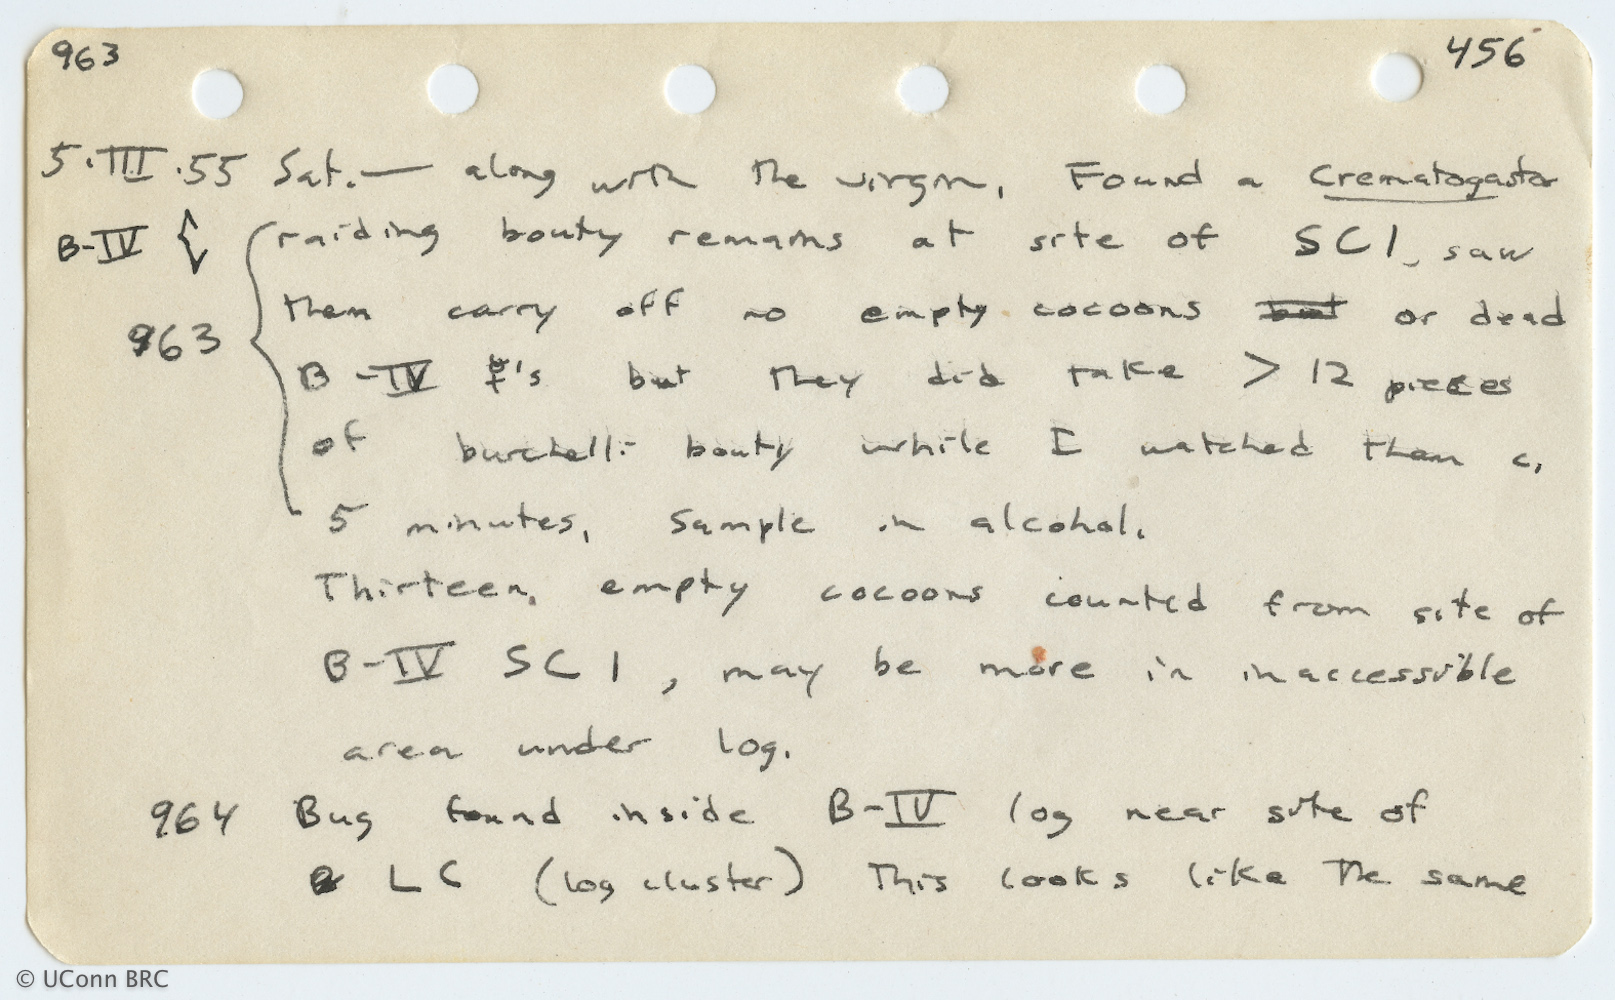 963 456
5.III.55 Sat.— along with the virgin. Found a Crematogaster
B-IV { raiding bouty remains at site of SC1, saw
them carry off no empty cocoons but or dead
963
B-IV ☿'s but they did take > 12 pieces
of burchelli bouty while I watched them c.
5 minutes, Sample in alcohol.
Thirteen, empty cocoons counted from site of
B-IV SC1, may be more in inaccessible
area under log.
964 Bug found inside B-IV log near site of
LC (log cluster) This looks like the same
© UConn BRC